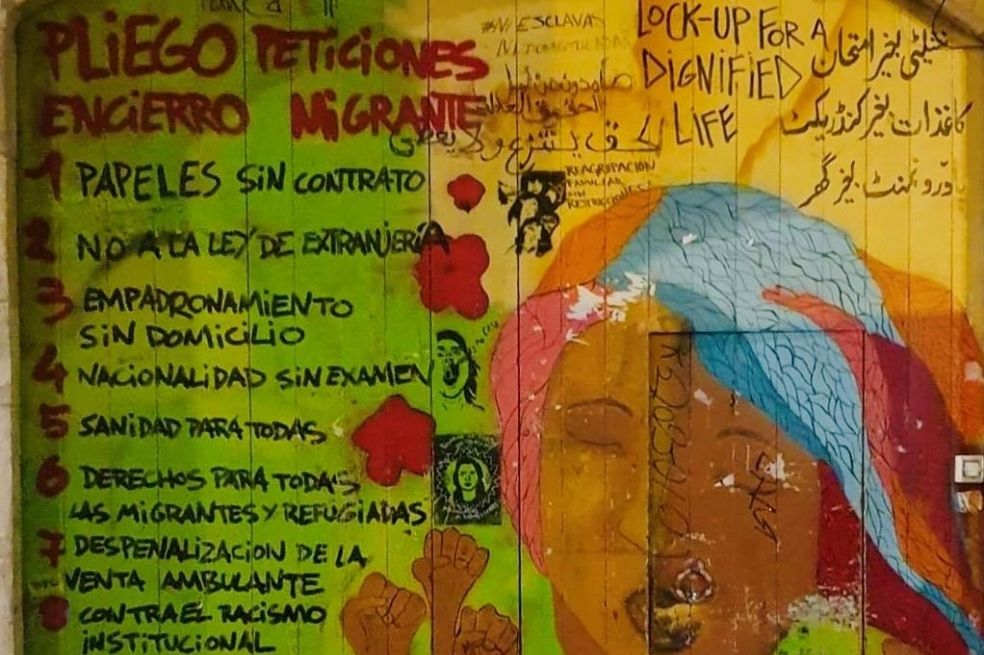 PLIEGO PETICIONES
ENCIERRO MIGRANTE
1 PAPELES SIN CONTRATO
2 NO A LA LEY DE EXTRANJERÍA
3 EMPADRONAMIENTO
SIN DOMICILIO
4 NACIONALIDAD SIN EXAMEN
5 SANIDAD PARA TODAS
6 DERECHOS PARA TODAS
LAS MIGRANTES Y REFUGIADAS
7 DESPENALIZACION DE LA
VENTA AMBULANTE
8 CONTRA EL RACISMO
INSTITUCIONAL
#NI ESCLAVAS
الحق ينتزع ولا يعطى
REAGRUPACION
FAMILIAR
SIN
RESTRICCIONES
LOCK-UP FOR A
DIGNIFIED
LIFE
نشلٹی بغیر امتحان
کاغذات بغیر کنٹریکٹ
بغیر گھر